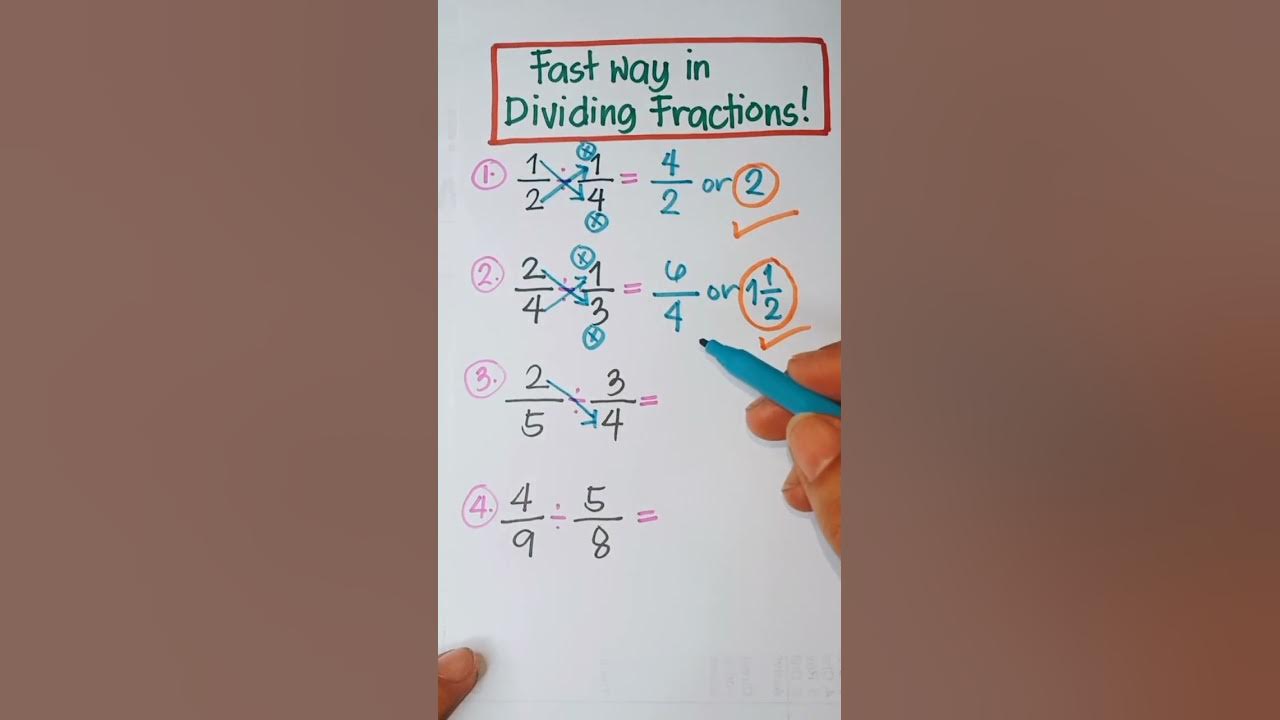 Fast Way in
Dividing Fractions!
1. 1/2 ÷ 1/4 = 4/2 or 2
2. 2/4 ÷ 1/3 = 6/4 or 1 1/2
3. 2/5 ÷ 3/4 =
4. 4/9 ÷ 5/8 =